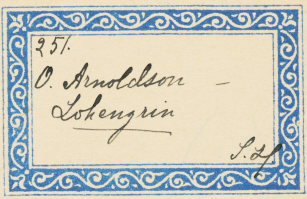 251.
O. Arnoldson –
Lohengrin